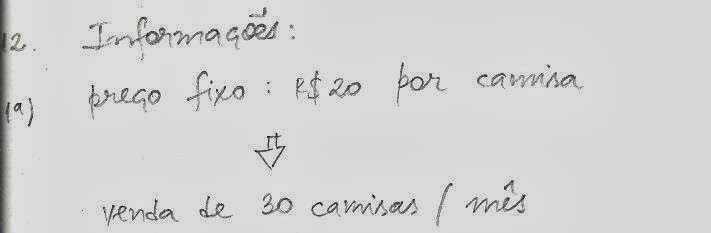 12. Informações:
1ª) preço fixo: R$ 20 por camisa
venda de 30 camisas / mês